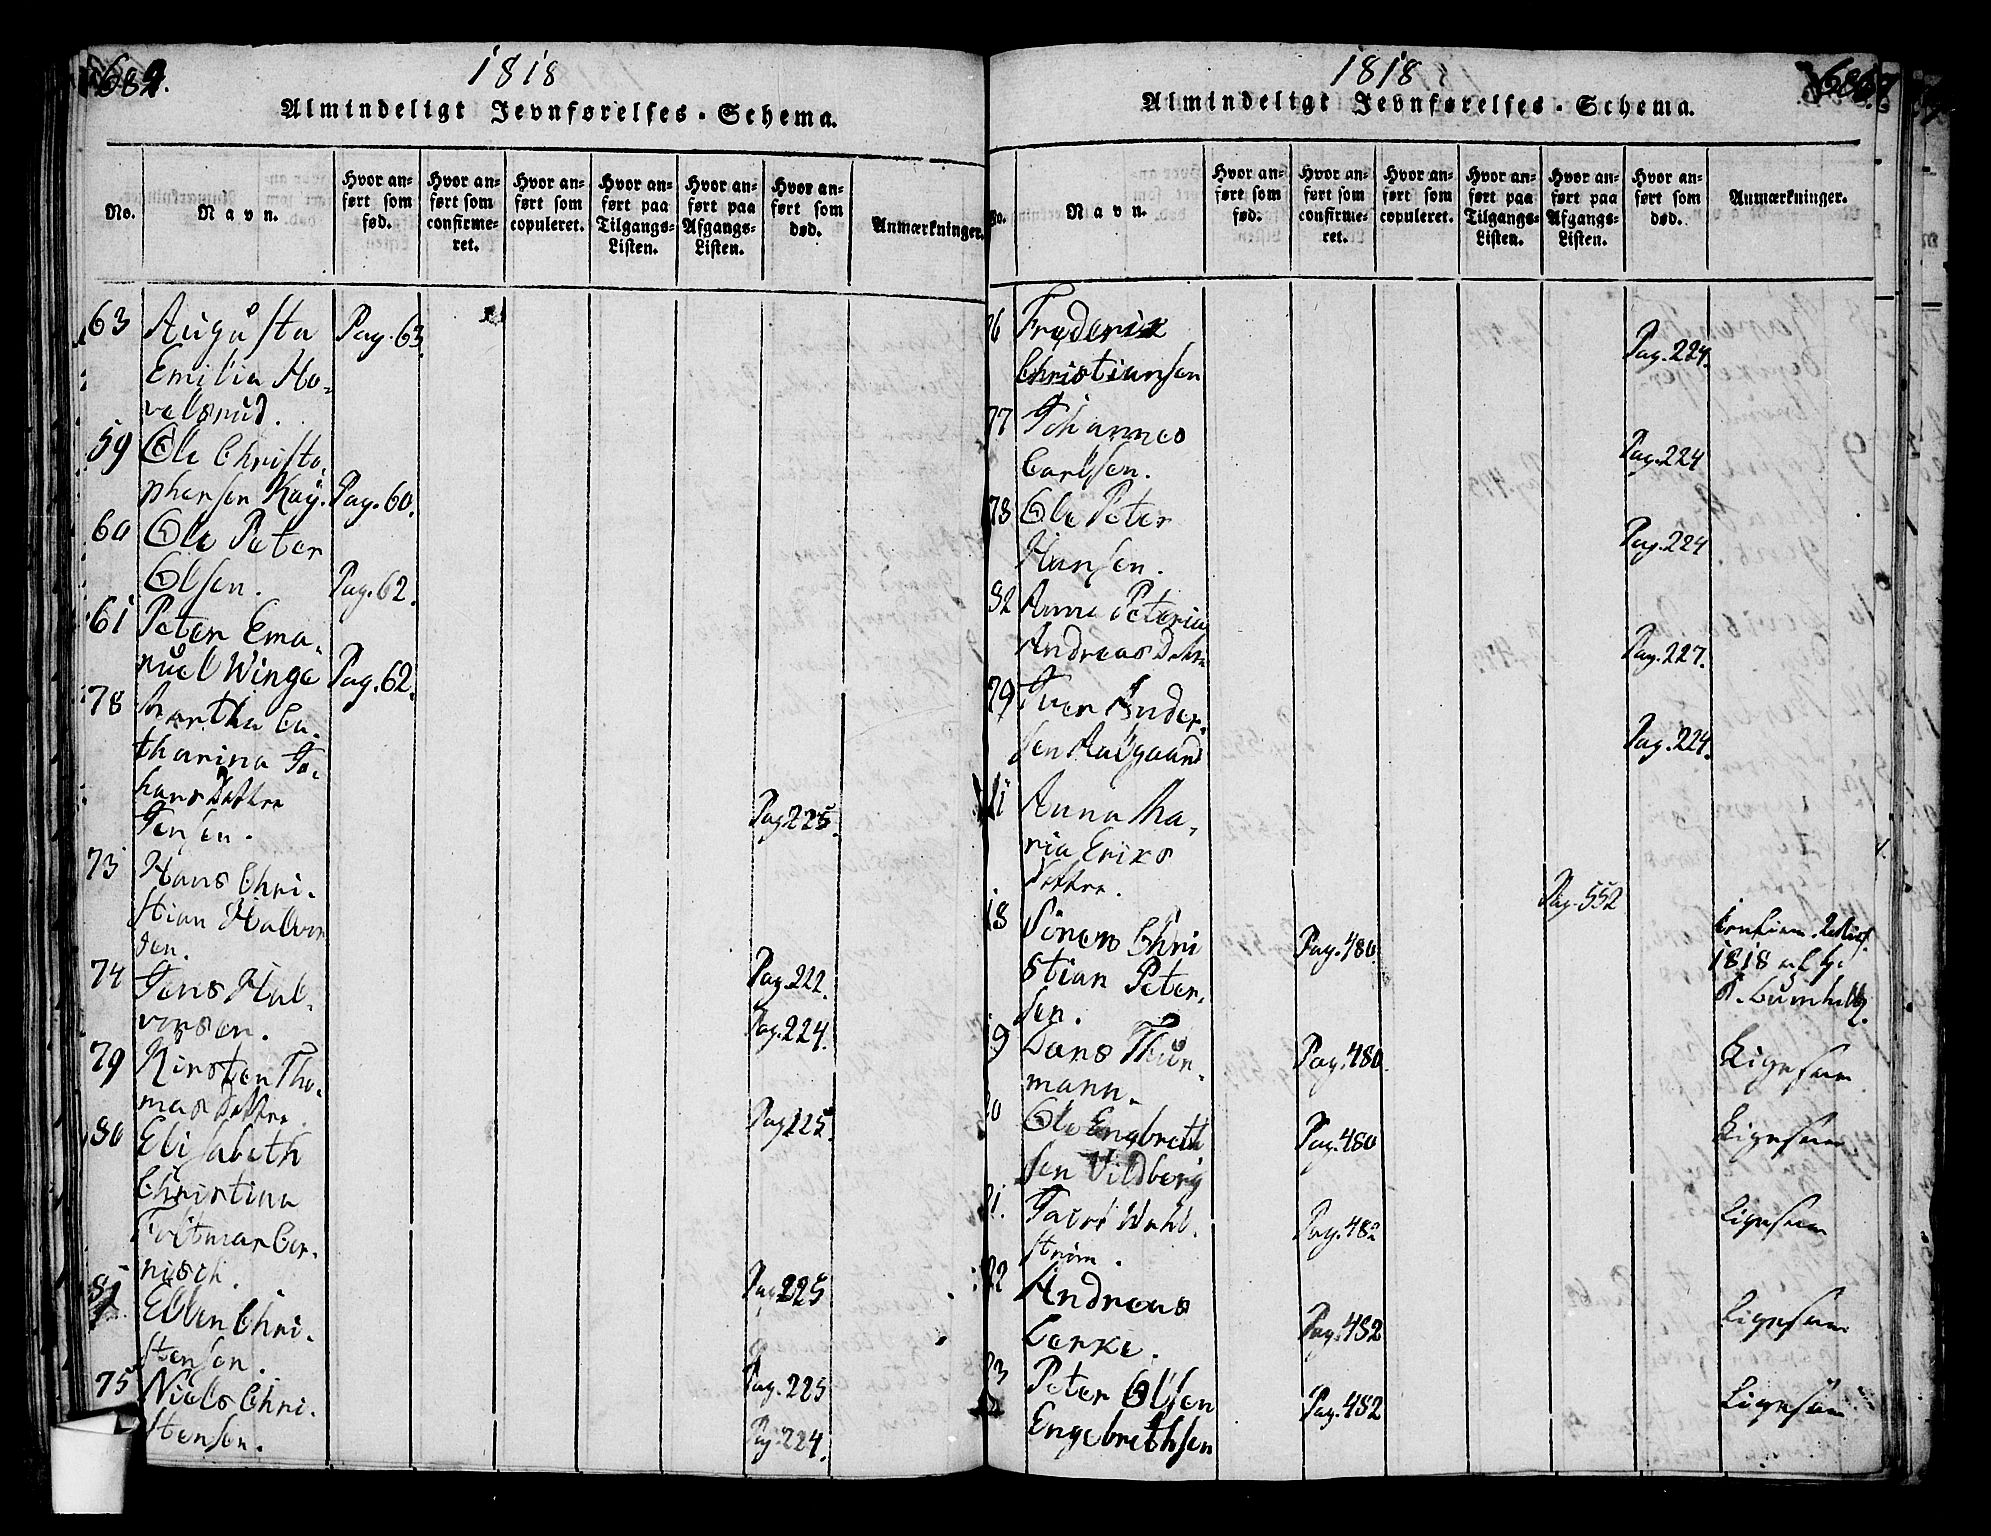 1818
Almindeligt Jevnførelses-Schema.
No.
Navn.
Hvor anført som fød.
Hvor anført som confirmeret.
Hvor anført som copuleret.
Hvor anført paa Tilgangs-Listen.
Hvor anført paa Afgangs-Listen.
Hvor anført som død.
Anmærkninger.
63 Augusta Pag. 63.
Emilia Ho-
velsrud.
59 Ole Christo-
phersen Kay. Pag. 60.
60 Ole Peter
Olsen. Pag. 62.
61 Peter Ema-
nuel Winge Pag. 62.
78 Martha Ca-
tharina Jo-
hansdatter
Jensen. Pag. 225.
73 Hans Chri-
stian Halvor
sen. Pag. 222.
74 Jens Hal-
vorsen. Pag. 224.
79 Kirsten Tho-
masdatter. Pag. 225.
80 Elisabeth
Christina
nisch. Pag. 225
81 Ellen Chri-
stensen. Pag. 225
75 Niels Chri-
stensen. Pag. 224.
1818
Almindeligt Jevnførelses-Schema.
No.
Navn.
Hvor anført som fød.
Hvor anført som confirmeret.
Hvor anført som copuleret.
Hvor anført paa Tilgangs-Listen.
Hvor anført paa Afgangs-Listen.
Hvor anført som død.
Anmærkninger.
76 Frederik Pag. 224.
Christiansen
77 Johannes
Carlsen. Pag. 224
78 Ole Peter
Hansen. Pag. 224
82 Anne Peteria
Andreas D. Pag. 227.
79 Iver Ander-
sen Aasgaard Pag. 224.
Anna Ma-
ria Eriks
datter. Pag. 552
18 Sören Chri Pag. 480.
stian Peter- 1818
sen.
19 Lars Thur- Pag. 480. Ligesaa
mann.
20 Ole Engbreth Pag. 480 Ligesaa
sen Vildberg
21. Wahl- Pag. 482 Ligesaa
ström.
22 Andreas
Lerke. Pag. 482 Ligesaa
23 Peter Olsen Pag. 482 Ligesaa
Engebrethsen